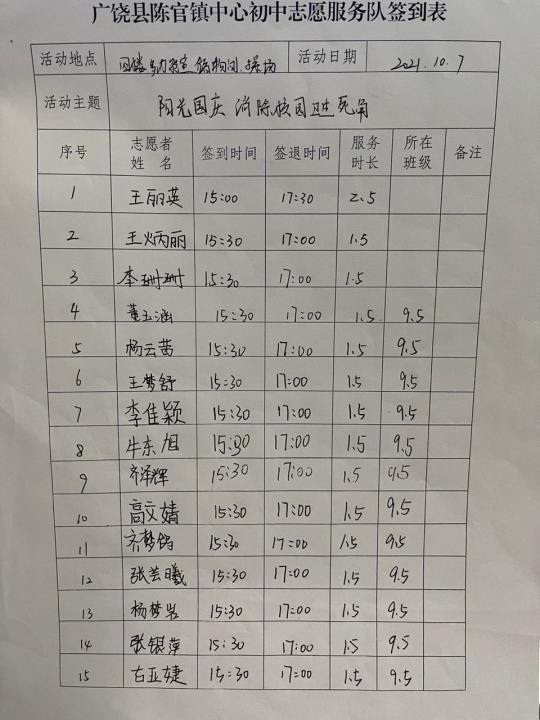 广饶县陈官镇中心初中志愿服务队签到表
活动地点 活动日期 2021.10.7
活动主题 阳光国庆 消除校园卫生死角
序号 志愿者姓名 签到时间 签退时间 服务时长 所在班级 备注
1 王丽英 15:00 17:30 2.5
2 王炳丽 15:30 17:00 1.5
3 李珊珊 15:30 17:00 1.5
4 董玉涵 15:30 17:00 1.5 9.5
5 杨云茜 15:30 17:00 1.5 9.5
6 王梦舒 15:30 17:00 1.5 9.5
7 李佳颖 15:30 17:00 1.5 9.5
8 牛东旭 15:30 17:00 1.5 9.5
9 齐泽辉 15:30 17:00 1.5 9.5
10 高文婧 15:30 17:00 1.5 9.5
11 齐梦 15:30 17:00 1.5 9.5
12 张芸曦 15:30 17:00 1.5 9.5
13 杨梦岩 15:30 17:00 1.5 9.5
14 张银萍 15:30 17:00 1.5 9.5
15 古亚婕 15:30 17:00 1.5 9.5